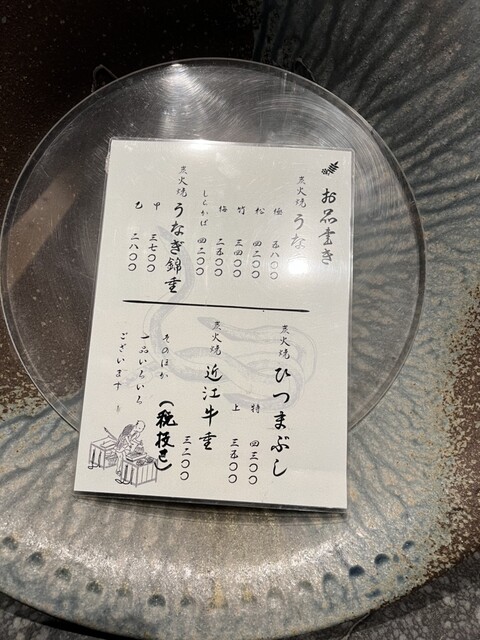 お品書き
炭火焼 うな
極 五八〇〇
松 四二〇〇
竹 三四〇〇
梅 二五〇〇
しらかば 四二〇〇
炭火焼 うなぎ錦重
甲 三七〇〇
乙 二八〇〇
炭火焼 ひつまぶし
特 四三〇〇
上 三五〇〇
炭火焼 近江牛重
三二〇〇
(税抜き)
そのほか
一品いろいろ
ございます